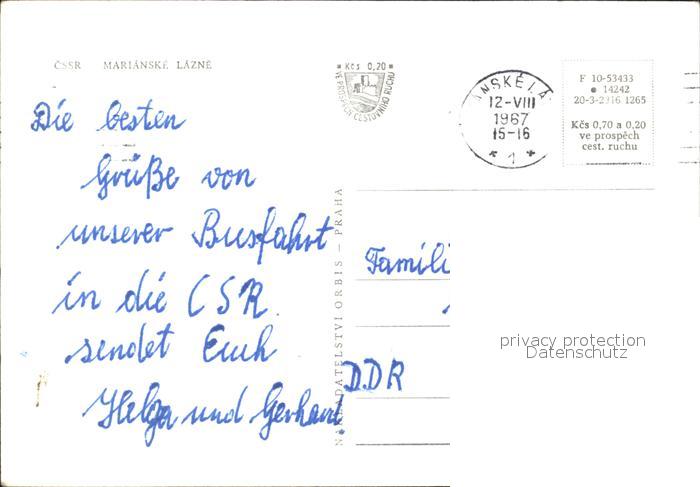 ČSSR MARIÁNSKÉ LÁZNĚ
Die besten
Grüße von
unserer Busfahrt
in die ČSR.
sendet Euch
Helga und Gerhard.
NAKLADATELSTVÍ ORBIS — PRAHA
* Kčs 0,20 *
VE PROSPĚCH CESTOVNÍHO RUCHU
ÁNSKÉ LÁ
12-VIII
1967
15-16
* 1 *
F 10-53433
● 14242
20-3-2316 1265
Kčs 0,70 a 0,20
ve prospěch
cest. ruchu
Famili
DDR
privacy protection
Datenschutz